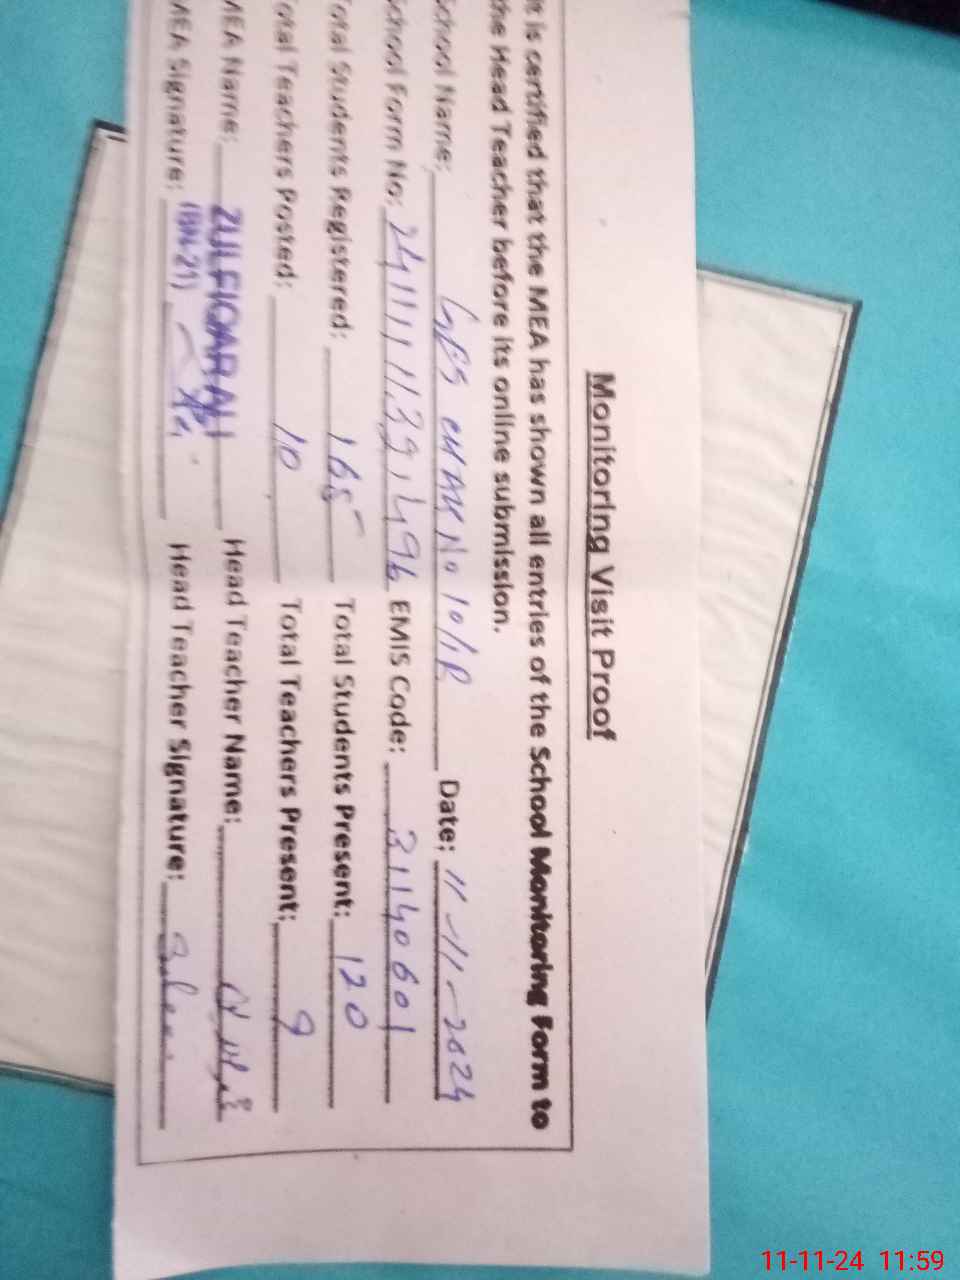 Monitoring Visit Proof
It is certified that the MEA has shown all entries of the School Monitoring Form to
the Head Teacher before its online submission.
School Name: GES CHAK No 10/1R Date: 11-11-2024
School Form No: EMIS Code: 31140601
Total Students Registered: 165 Total Students Present: 120
Total Teachers Posted: 10 Total Teachers Present: 9
MEA Name: ZULFIQAR ALI Head Teacher Name:
(BN-21)
MEA Signature: Head Teacher Signature:
11-11-24 11:59